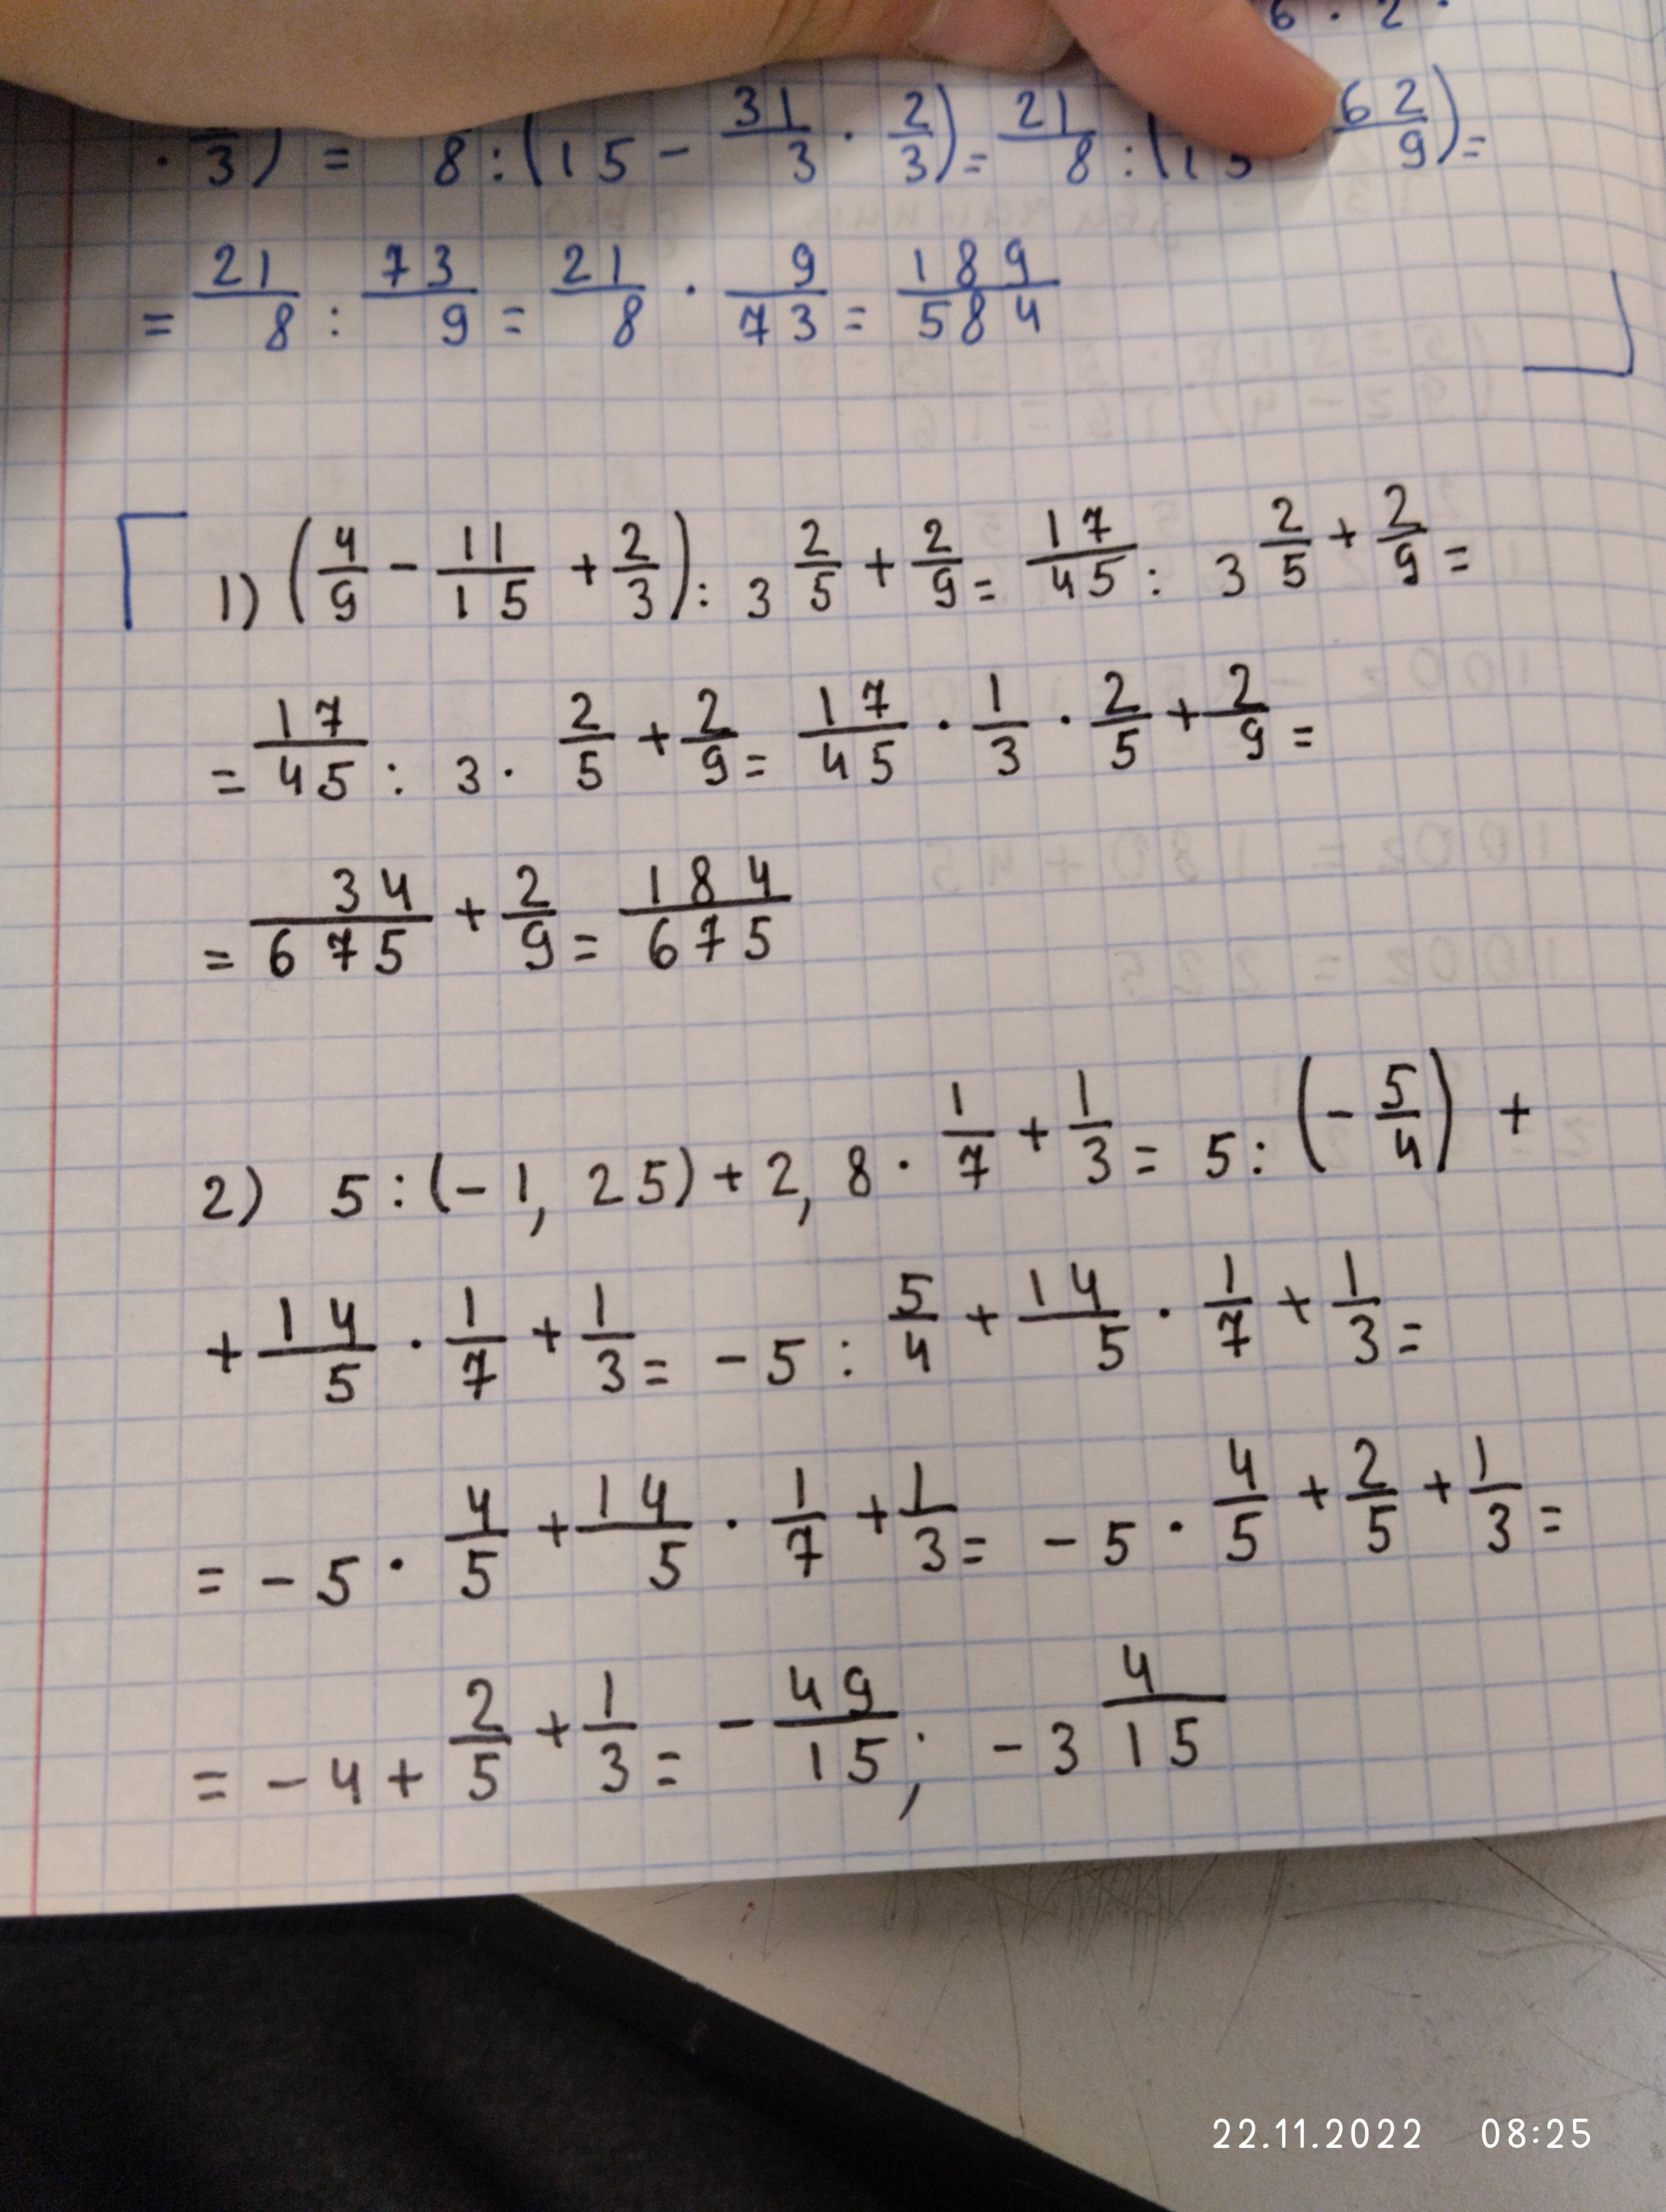 6 · 2 ·
· /3) = 8 : (15 - 31/3 · 2/3) = 21/8 : (15 62/9) =
= 21/8 : 73/9 = 21/8 · 9/73 = 189/584
1) (4/9 - 11/15 + 2/3) : 3 2/5 + 2/9 = 17/45 : 3 2/5 + 2/9 =
= 17/45 : 3 · 2/5 + 2/9 = 17/45 · 1/3 · 2/5 + 2/9 =
= 34/675 + 2/9 = 184/675
2) 5 : (-1,25) + 2,8 · 1/7 + 1/3 = 5 : (-5/4) +
+ 14/5 · 1/7 + 1/3 = -5 : 5/4 + 14/5 · 1/7 + 1/3 =
= -5 · 4/5 + 14/5 · 1/7 + 1/3 = -5 · 4/5 + 2/5 + 1/3 =
= -4 + 2/5 + 1/3 = -49/15; -3 4/15
22.11.2022 08:25